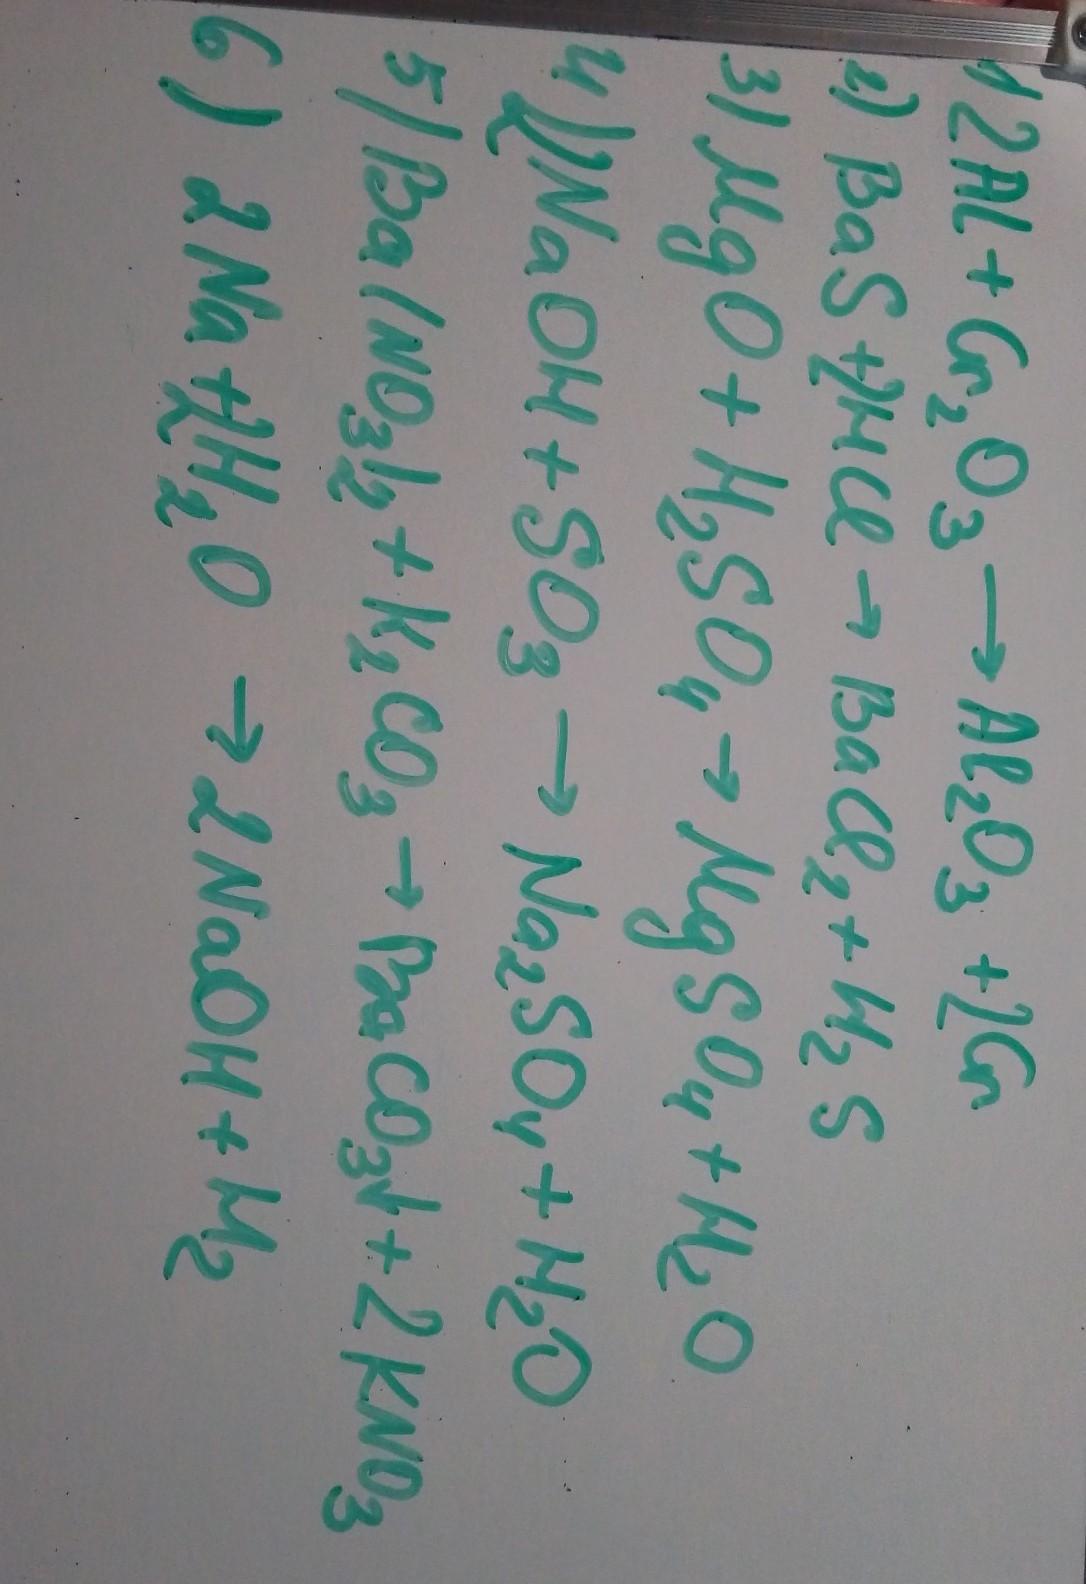 1) 2Al + Cr₂O₃ → Al₂O₃ + 2Cr
2) BaS + 2HCl → BaCl₂ + H₂S
3) MgO + H₂SO₄ → MgSO₄ + H₂O
4) 2NaOH + SO₃ → Na₂SO₄ + H₂O
5) Ba(NO₃)₂ + K₂CO₃ → BaCO₃↓ + 2KNO₃
6) 2Na + 2H₂O → 2NaOH + H₂